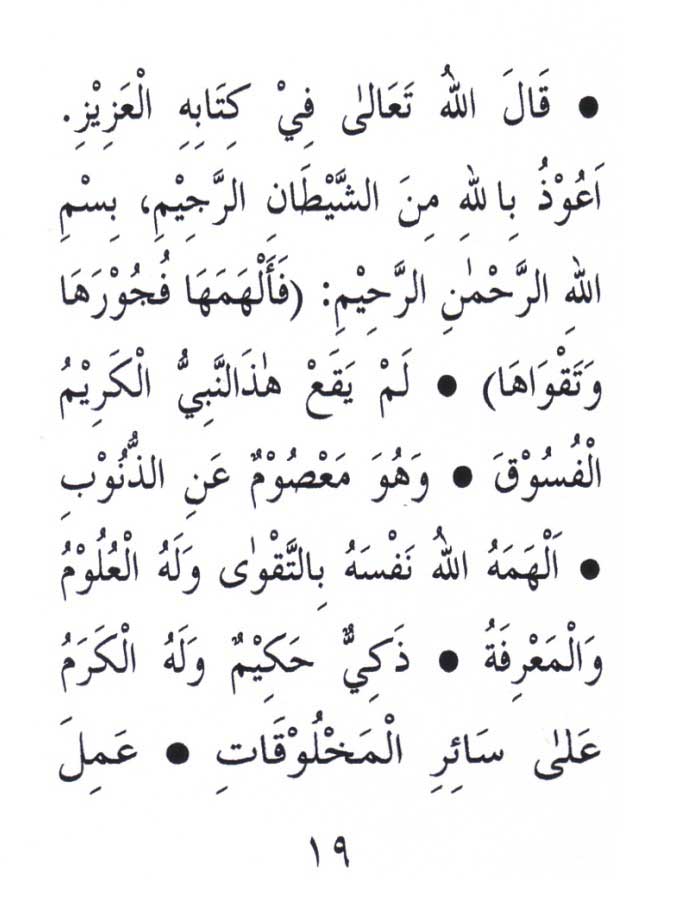 ● قَالَ اللهُ تَعَالٰى فِيْ كِتَابِهِ الْعَزِيْزِ.
اَعُوْذُ بِاللهِ مِنَ الشَّيْطَانِ الرَّجِيْمِ، بِسْمِ
اللهِ الرَّحْمٰنِ الرَّحِيْمِ: (فَأَلْهَمَهَا فُجُوْرَهَا
وَتَقْوَاهَا) ● لَمْ يَقَعْ هٰذَالنَّبِيُّ الْكَرِيْمُ
الْفُسُوْقَ ● وَهُوَ مَعْصُوْمٌ عَنِ الذُّنُوْبِ
● اَلْهَمَهُ اللهُ نَفْسَهُ بِالتَّقْوٰى وَلَهُ الْعُلُوْمُ
وَالْمَعْرِفَةُ ● ذَكِيٌّ حَكِيْمٌ وَلَهُ الْكَرَمُ
عَلٰى سَائِرِ الْمَخْلُوْقَاتِ ● عَمِلَ
١٩